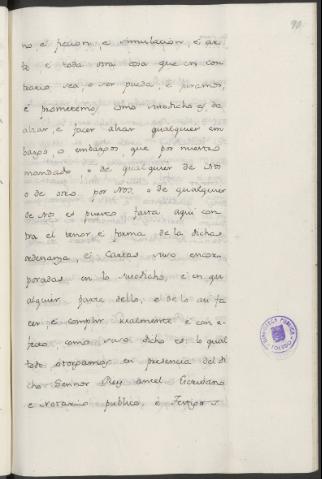 90
no é ficcion, é simulacion, é ar-
te, é toda otra cosa que en con-
trario sea, o ser pueda, é juramos,
é prometemos, como susodicho es, de
alzar, e facer alzar qualquier em
bargo, o embargos que por nuestro
mandado o de qualquier de Nos
o de otro por Nos, o de qualquier
de Nos es puesto fasta aqui con-
tra el tenor é forma de la dichas
ordenanza, é Cartas suso encor-
poradas en lo susodicho, é en qu
alquier parte dello, é de lo asi fa
cer é complir realmente é con e-
fecto como suso dicho es: lo qual
todo otorgamos en presencia del di
cho Sennor Rey antel Escribano
e Notario publico, é Testigos
BIBLIOTECA PUBLICA
TOLEDO